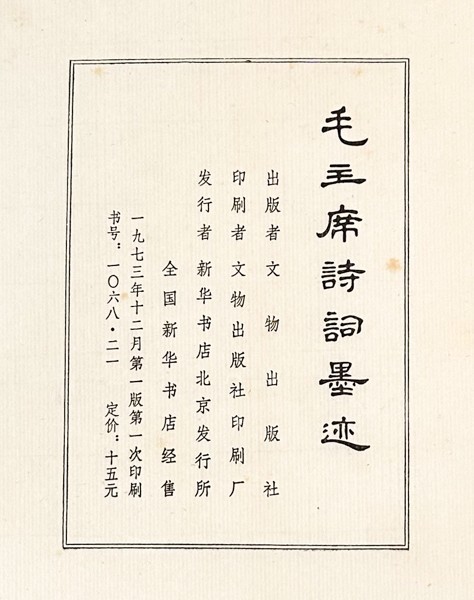 毛主席詩詞墨迹
出版者 文物出版社
印刷者 文物出版社印刷厂
发行者 新华书店北京发行所
全国新华书店经售
一九七三年十二月第一版第一次印刷
书号：一〇六八·二一 定价：十五元